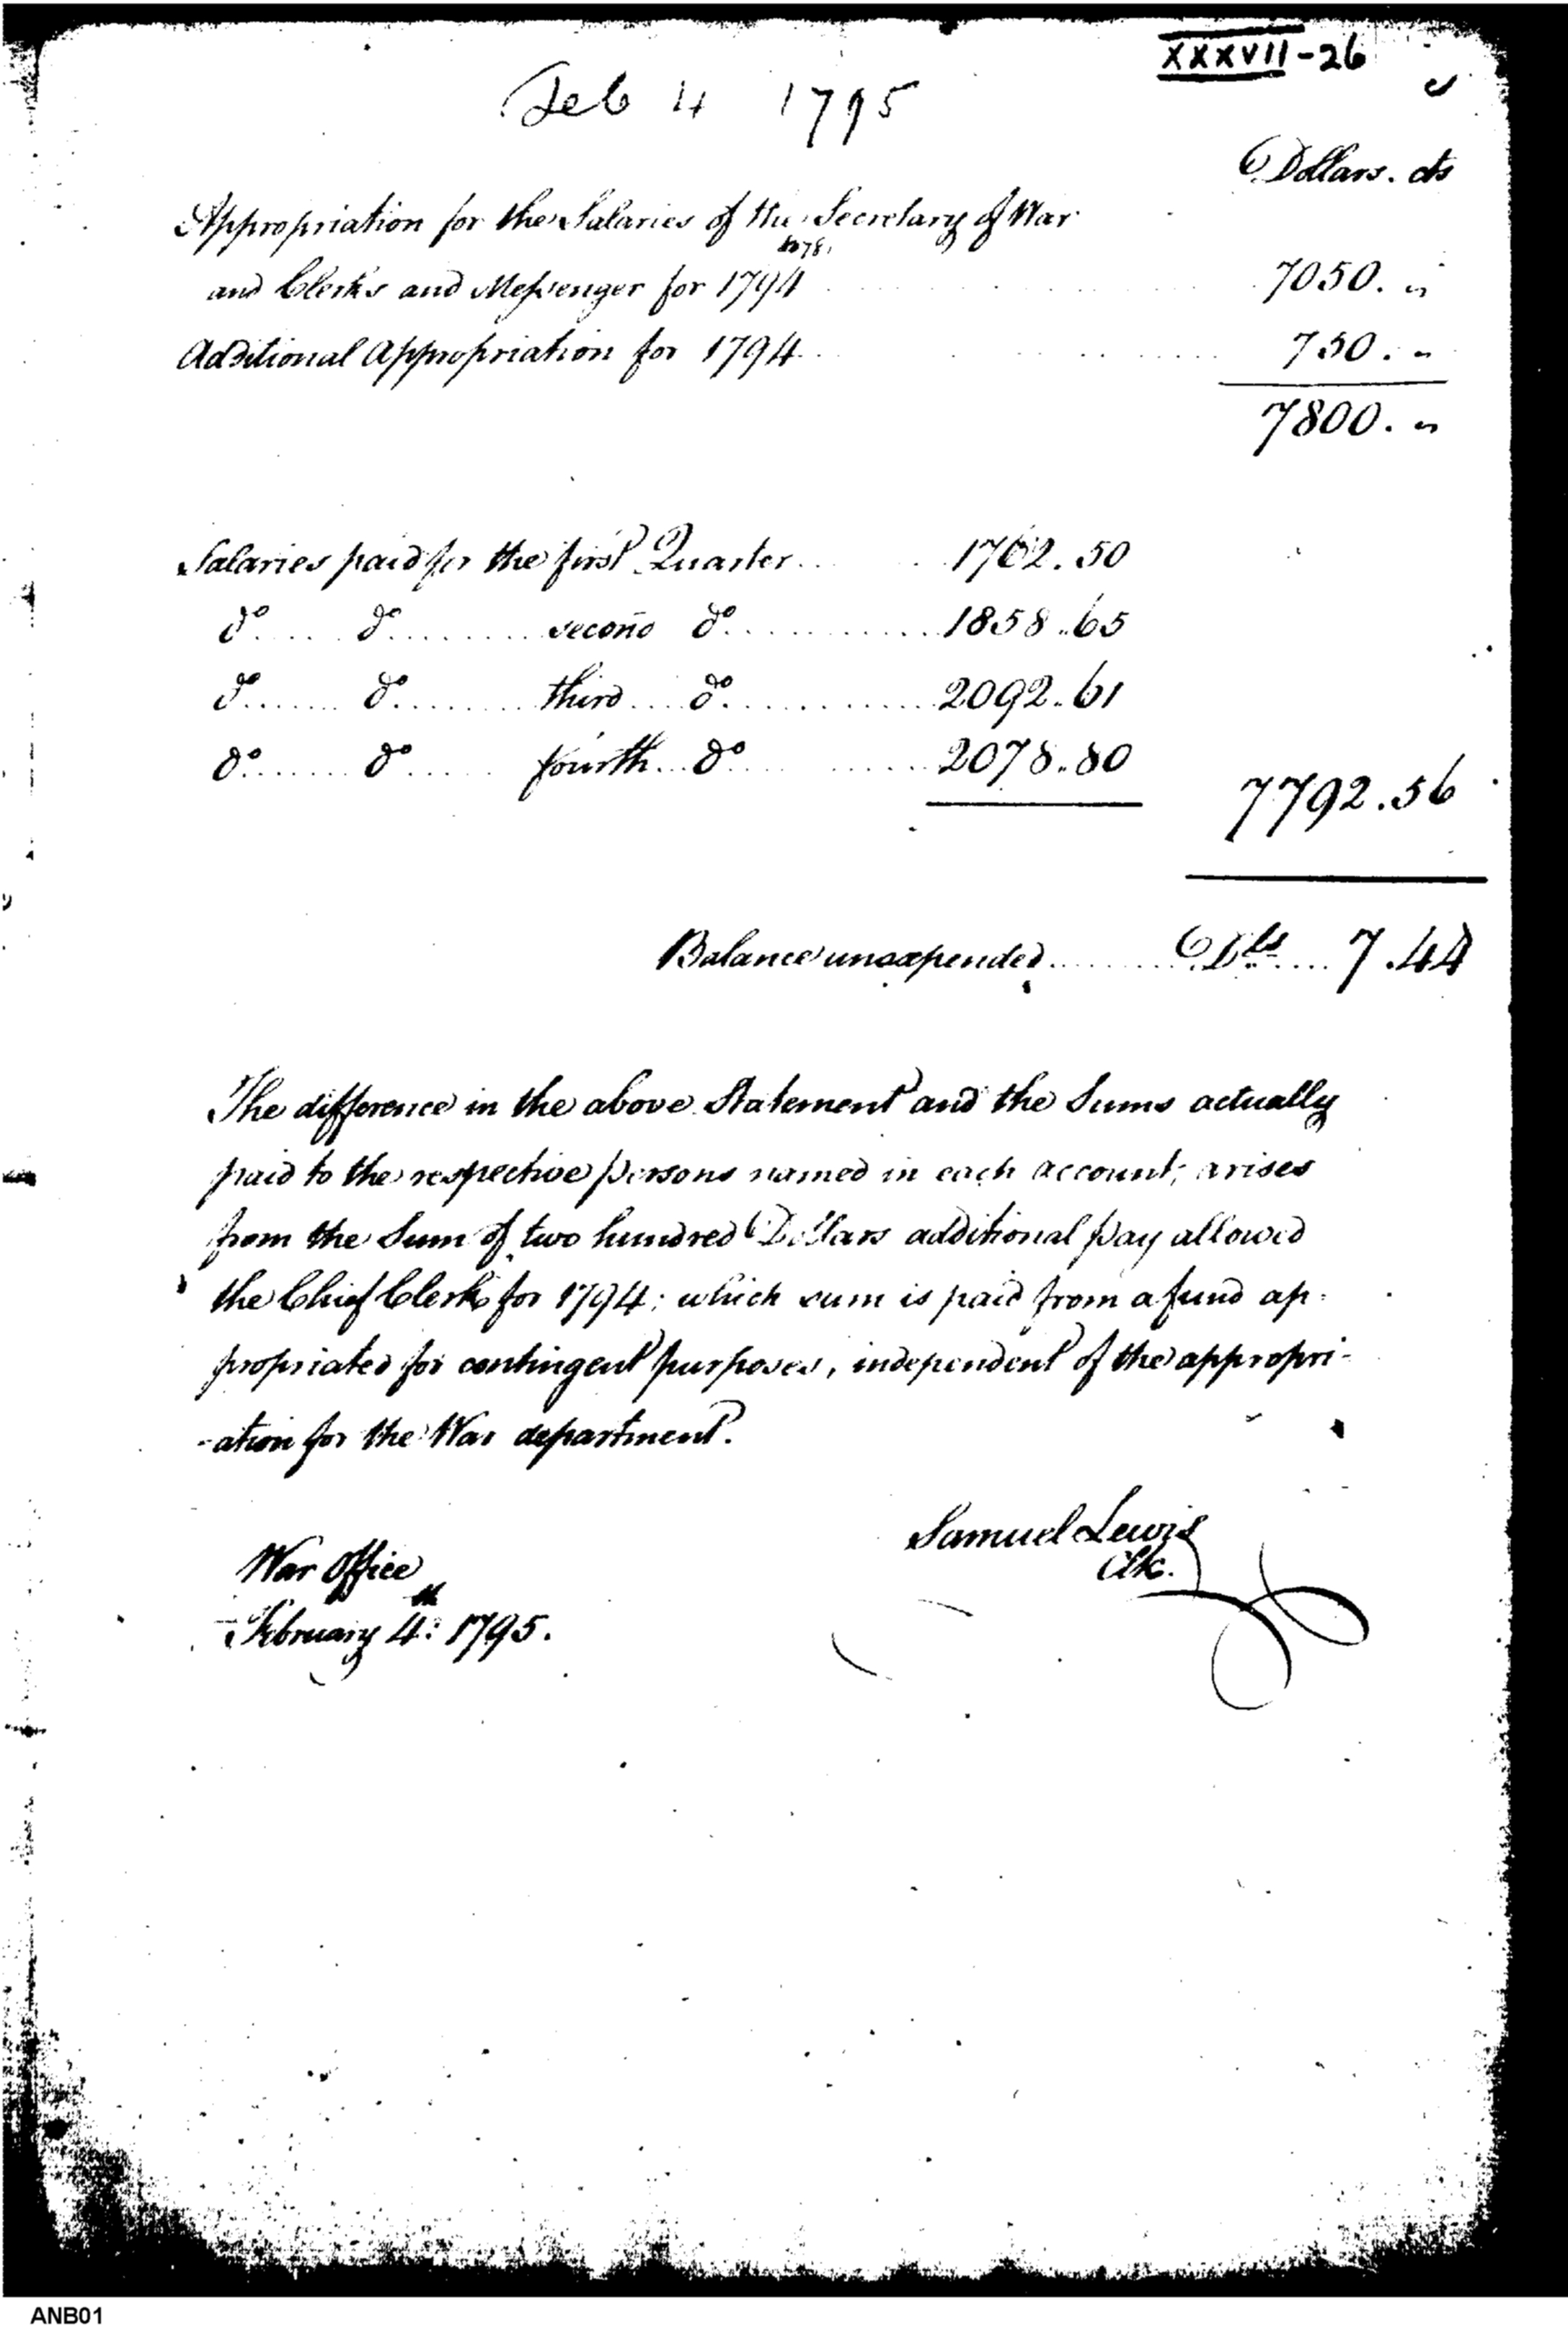 XXXVII-26
Feb 4 1795
Dollars. cts
Appropriation for the Salaries of the Secretary of War
and Clerks and Messenger for 1794 7050. "
Additional Appropriation for 1794 750. "
7800. "
Salaries paid for the first Quarter 1762.50
do do second do 1858.65
do do third do 2092.61
do do fourth do 2078.80
7792.56
Balance unexpended Dls 7.44
The difference in the above Statement and the Sums actually
paid to the respective persons named in each account; arises
from the Sum of two hundred Dollars additional pay allowed
the Chief Clerk for 1794; which sum is paid from a fund ap-
propriated for contingent purposes, independent of the appropri-
-ation for the War department.
Samuel Lewis
Clk.
War Office
February 4th 1795.
ANB01